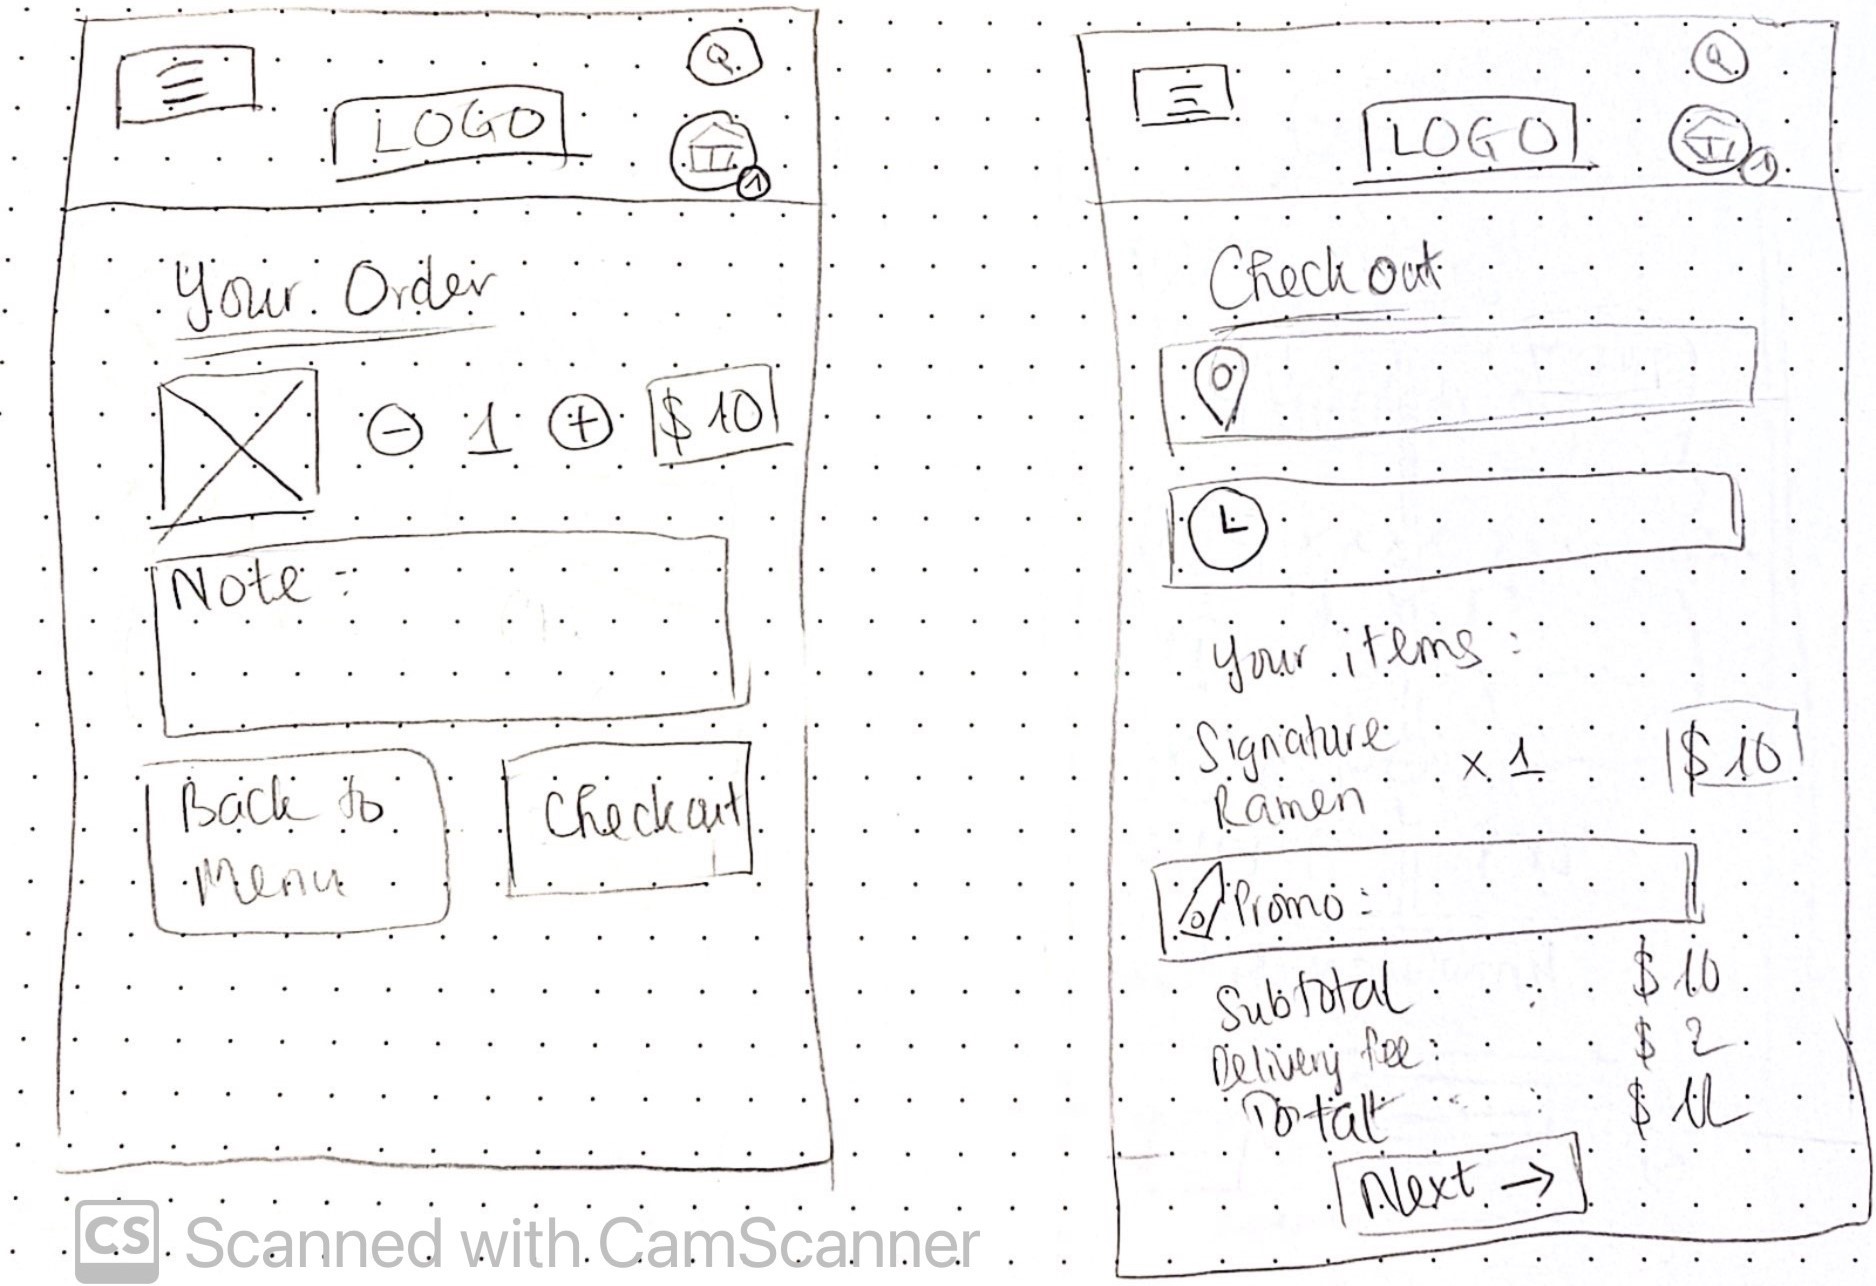 LOGO
1
Your Order
1 $10
Note:
Back to
Menu
Checkout
LOGO
1
Checkout
Your items:
Signature
Ramen
x 1 $10
Promo:
Subtotal : $10
Delivery fee: $2
Total : $12
Next →
CS Scanned with CamScanner